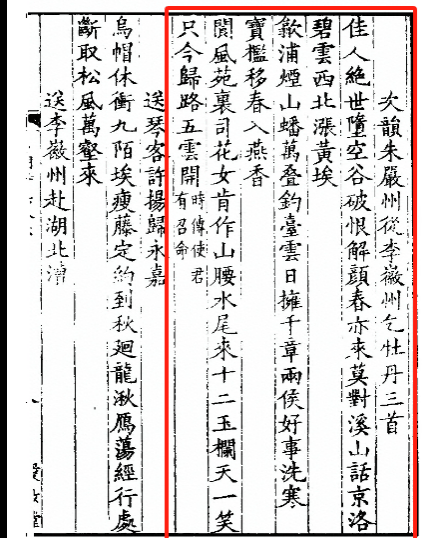 次韻朱嚴州從李徽州乞牡丹三首
佳人絶世墮空谷破恨解顔春亦來莫對溪山話京洛
碧雲西北漲黃埃
歙浦煙山蟠萬叠釣臺雲日擁千章兩侯好事洗寒
寶檻移春入燕香
閬風苑裏司花女肯作山腰水尾來十二玉欄天一笑
只今歸路五雲開
時傳使君
有召命
送琴客許揚歸永嘉
烏帽休衝九陌埃瘦藤定約到秋廻龍湫鴈蕩經行處
斷取松風萬壑來
送李徽州赴湖北漕